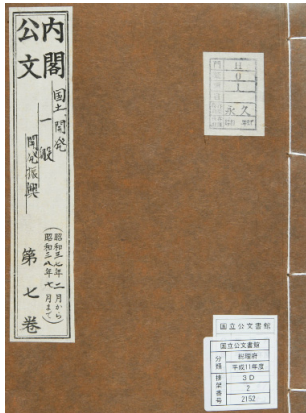 内閣
公文
国土開発
一般
開発振興
(昭和三七年二月から
昭和三八年七月まで)
第七卷
永久
国立公文書館
国立公文書館
分類
総理府
平成11年度
排架番号
3D
2
2152